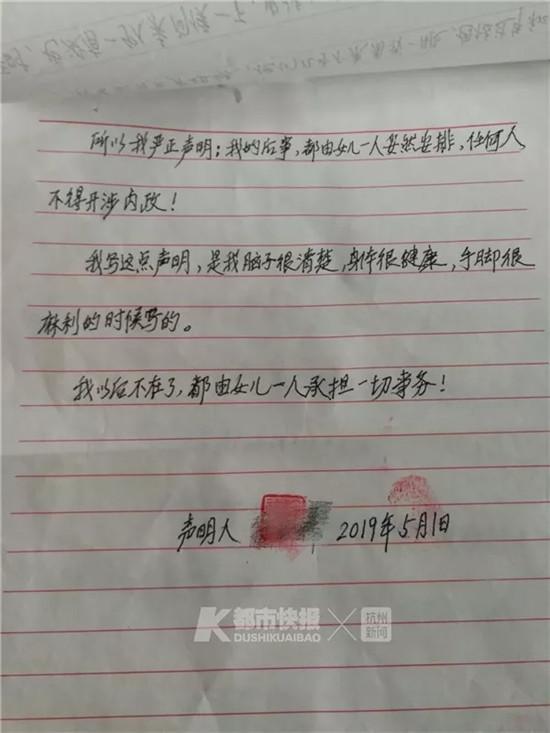 所以我严正声明；我的后事，都由女儿一人安然安排，任何人
不得开涉内政！
我写这点声明，是我脑子很清楚，身体很健康，手脚很
麻利的时候写的。
我以后不在了，都由女儿一人承担一切事务！
声明人 2019年5月1日
K都市快报 × 杭州新闻
DUSHIKUAIBAO